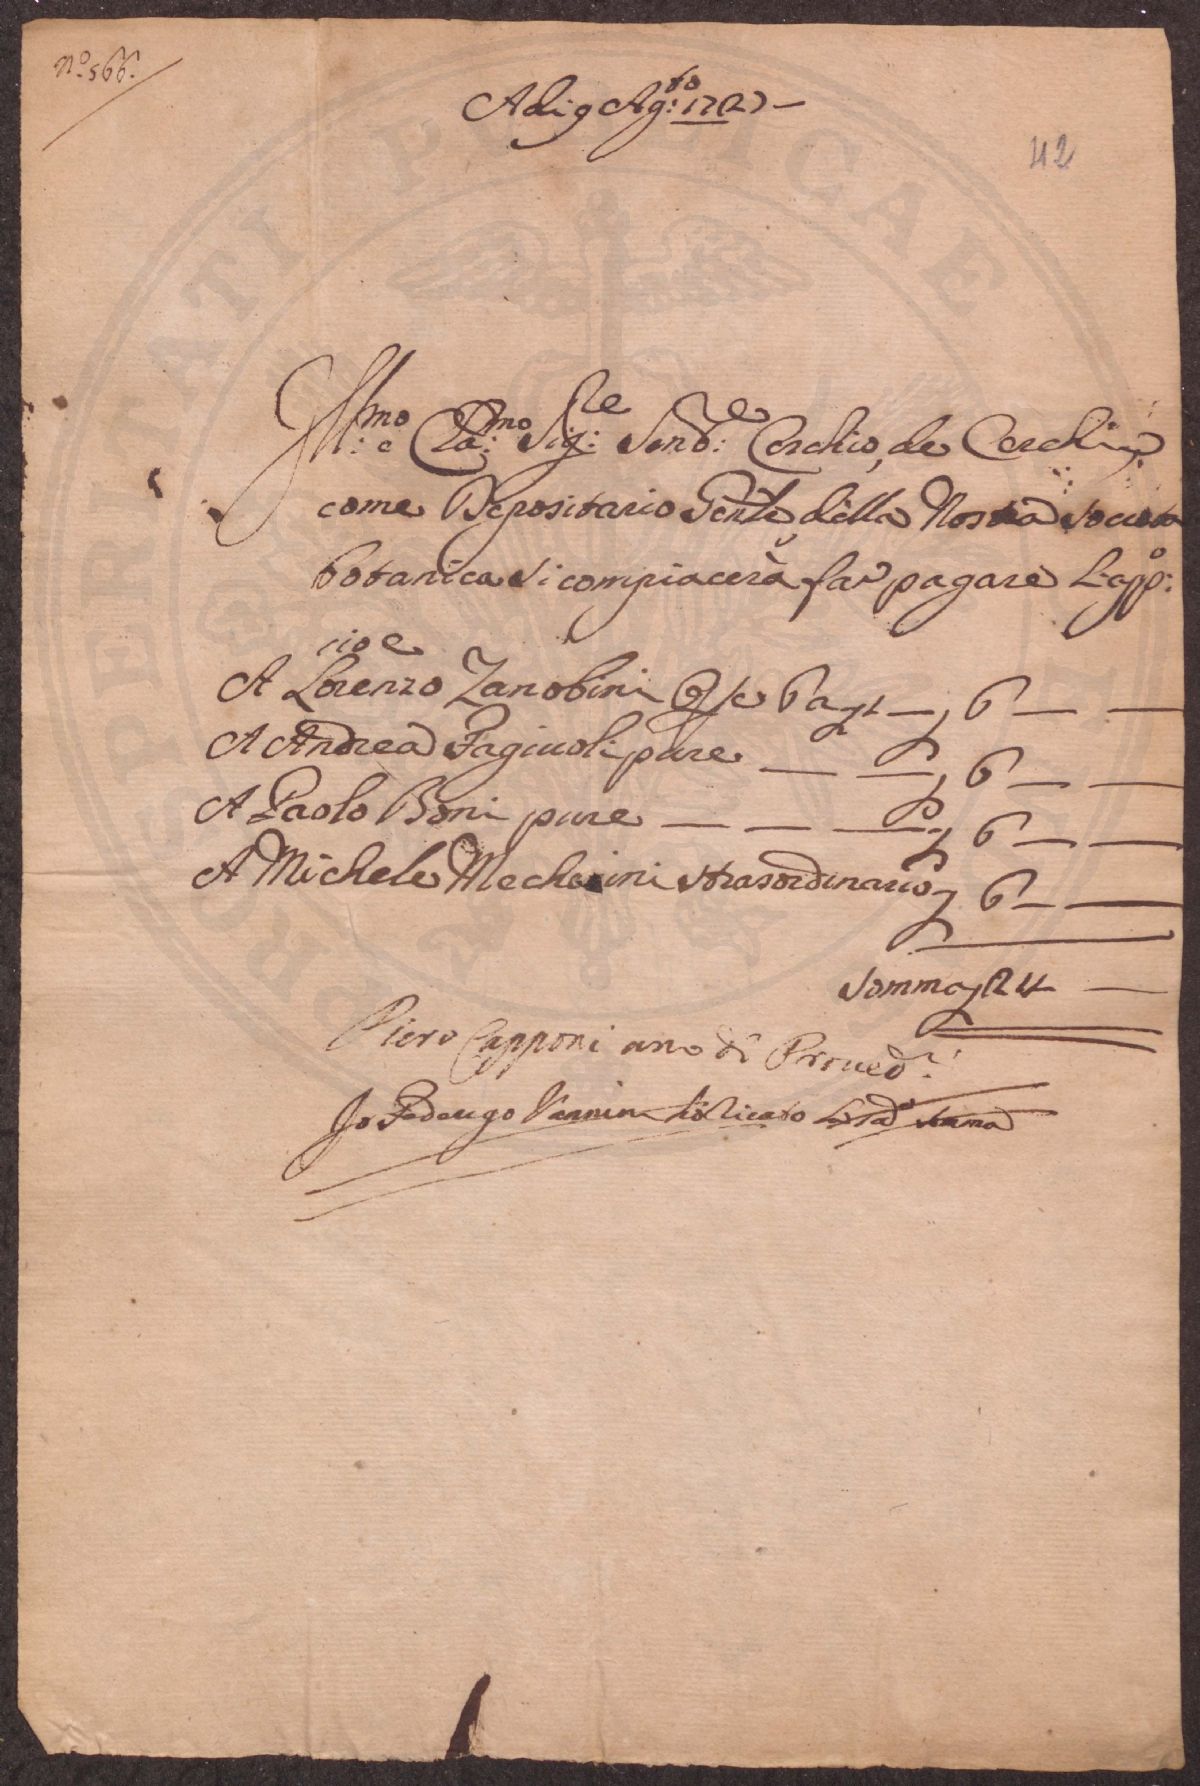 N.o 566.
Adi 9 Ag:to 1727
42
Ill:mo e Cla:mo Sig:re Send:re Cerchio de Cerchi
come Depositario Gen:le della Nostra Società
botanica si compiacerà far pagare l'app:o
cioe
A Lorenzo Zanobini 6
A Andrea Fagiuoli pure 6
A Paolo Boni pure 6
A Michele Mecherini strasordinario 6
Somma 24
Piero Capponi uno di Proued:ri
Io Federigo Vannini